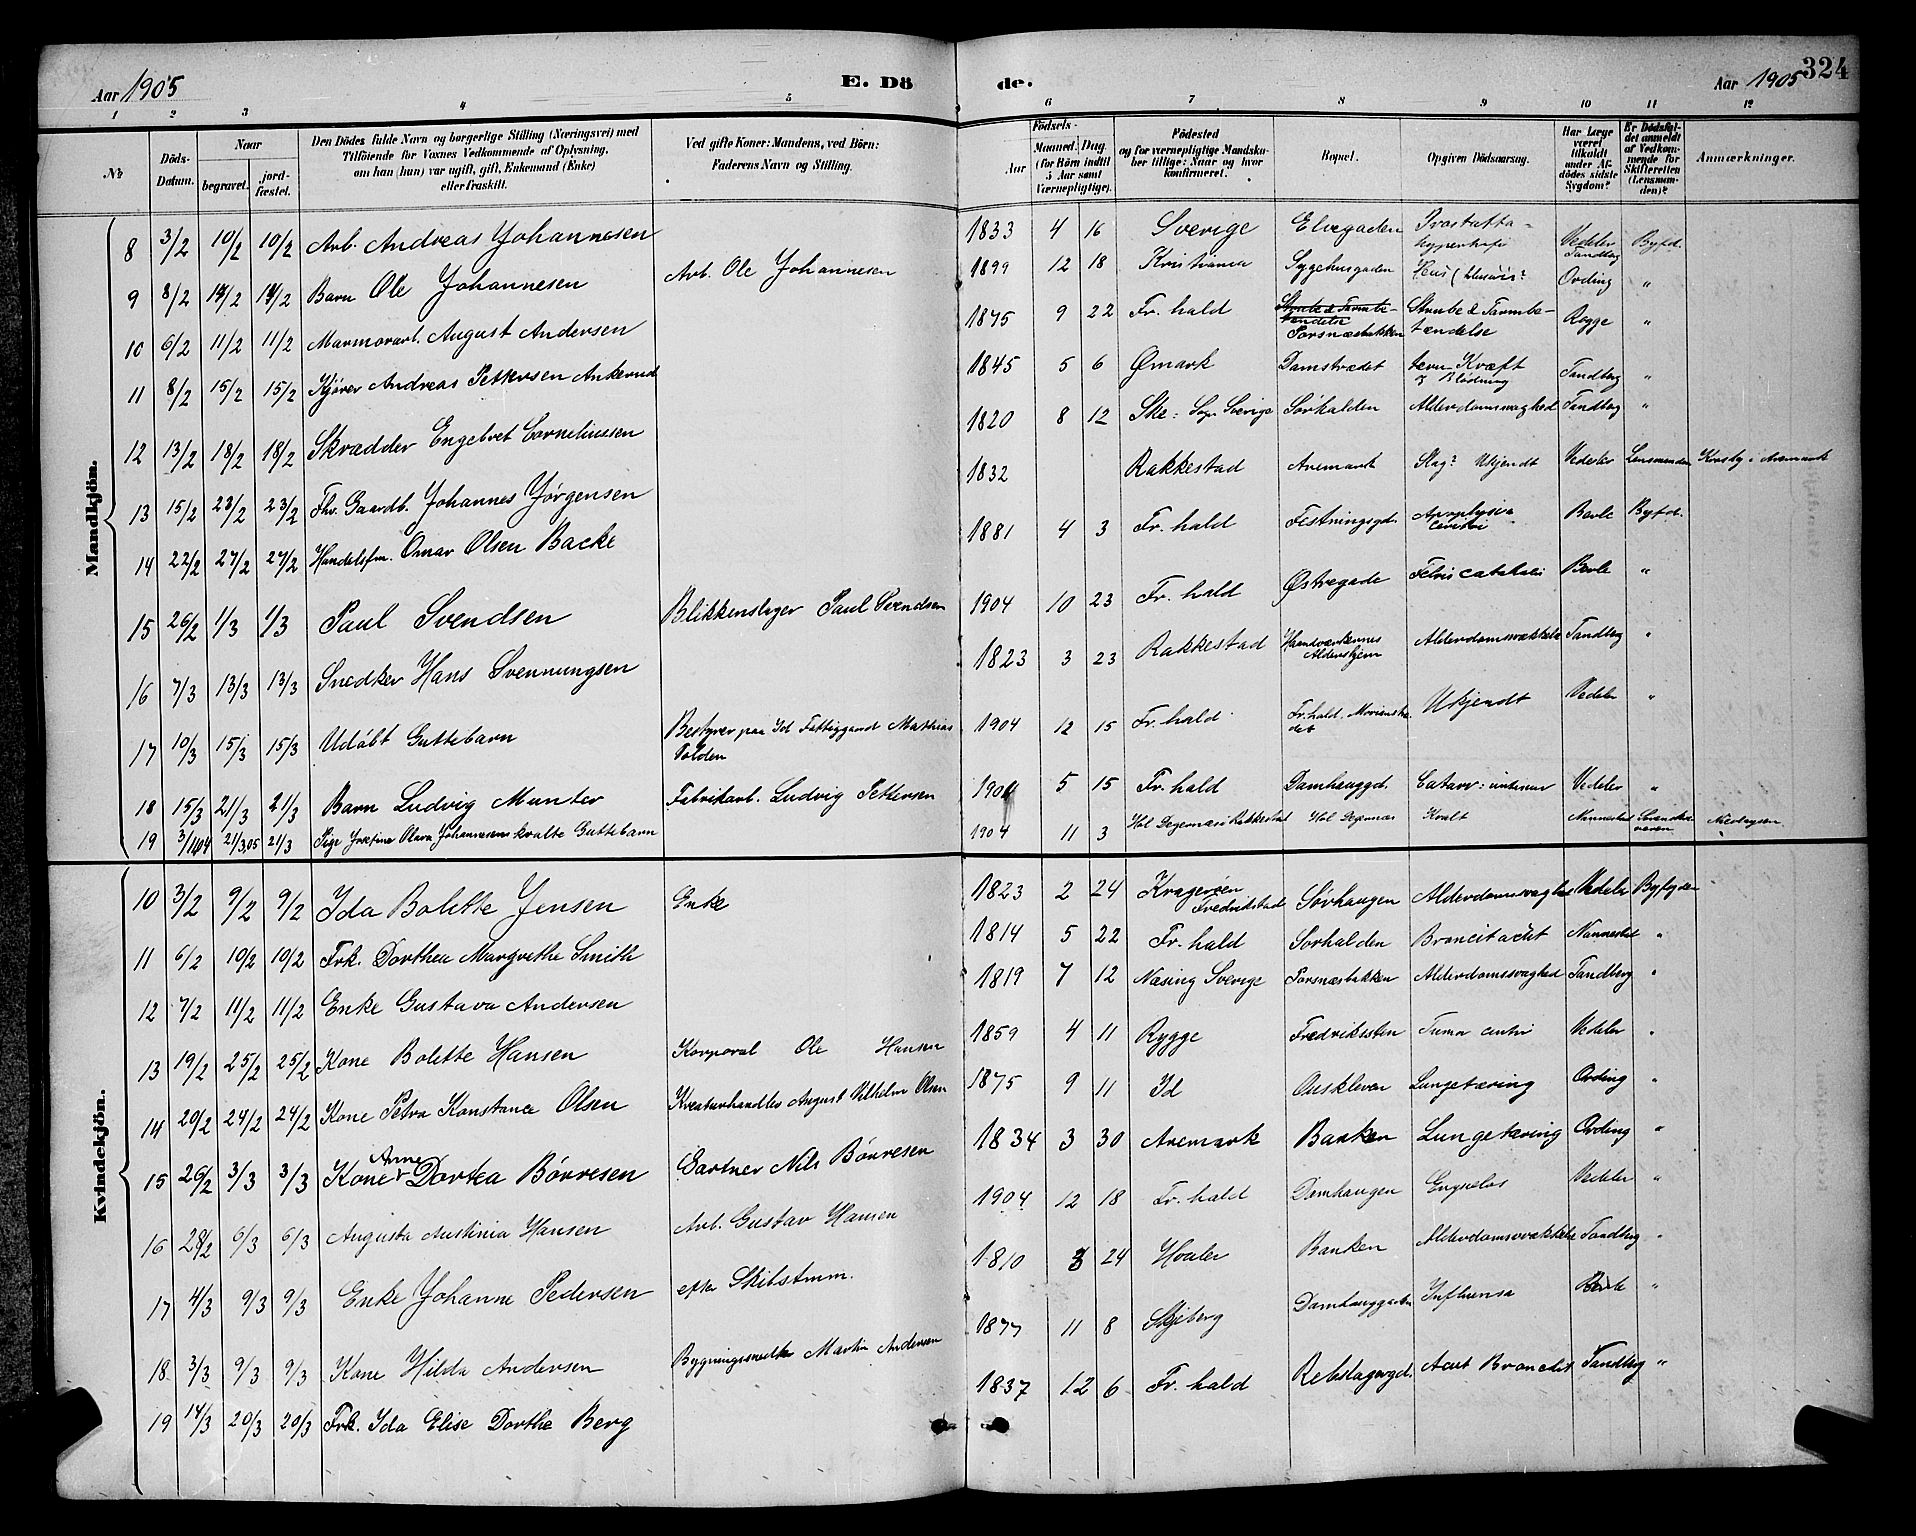 Aar 1905
E. Dö
de.
Aar 1905
324
1 2 3 4 5 6 7 8 9 10 11 12
No
Döds-Datum.
Naar
begravet.
jord-fæstet.
Den Dödes fulde Navn og borgerlige Stilling (Næringsvei) med
Tilföiende for Voxnes Vedkommende af Oplysning,
om han (hun) var ugift, gift, Enkemand (Enke)
eller fraskilt.
Ved gifte Koner: Mandens, ved Börn:
Faderens Navn og Stilling.
Födsels-
Aar
Maaned. Dag
(for Börn indtil
5 Aar samt
Værnepligtige).
Födested
og for værnepligtige Mandska-
ber tillige: Naar og hvor
konfirmeret.
Bopæl.
Opgiven Dödsaarsag.
Har Læge
været
tilkaldt
under Af-
dödes sidste
Sygdom?
Er Dödsfal-
det anmeldt
af Vedkom-
mende for
Skifteretten
(Lensman-
den)?
Anmærkninger.
Mandkjön.
8 3/2 10/2 10/2 Arb. Andreas Johannesen 1833 4 16 Sverige Elvegaden Prostatta-hypertrofi Vedeler Tandberg Byfd.
9 8/2 14/2 14/2 Barn Ole Johannesen Arb. Ole Johannesen 1899 12 18 Kristiania Sygehusgaden Ording "
10 6/2 11/2 11/2 Marmorarb. August Andersen 1875 9 22 Fr. hald Porsnæsbakken Strube & Tarmbe-tændelse Rogge "
11 8/2 15/2 15/2 Kjører Andreas Pettersen Ankerud 1845 5 6 Ømark Damstrædet Kræft & Blødning Tandberg "
12 13/2 18/2 18/2 Skrædder Engelbret Corneliussen 1820 8 12 Ske: Sogn Sverige Sørhalden Alderdomssvaghed Tandberg "
13 15/2 23/2 23/2 Fhv. Gaardb. Johannes Jørgensen 1832 Rakkestad Aremark Slag? Ukjendt Vedeler Lensmanden i Aremark
14 22/2 27/2 27/2 Handelsfm. Omar Olsen Backe 1881 4 3 Fr. hald Festningsgd. Apoplysia cerebri Berle Byfd.
15 26/2 1/3 1/3 Paul Svendsen Blikkenslager Paul Svendsen 1904 10 23 Fr. hald Østregade Febris catahalis Berle "
16 7/3 13/3 13/3 Snedker Hans Svennungsen 1823 3 23 Rakkestad Haandværkernes Aldershjem Alderdomssvækkelse Tandberg "
17 10/3 15/3 15/3 Udøbt Guttebarn Bestyrer paa Id Fattiggaard Matthias Volden 1904 12 15 Fr. hald Fr. hald. Ukjendt Vedeler "
18 15/3 21/3 21/3 Barn Ludvig Munter Fabrikarb. Ludvig Pettersen 1904 5 15 Fr. hald Damhauggd. Catarr: intinur Vedeler "
19 3/11 04 21/3,05 21/3 Pige Josefine Olava Johannesens kvalte Guttebarn 1904 11 3 Hol Degernæs i Rakkestad Hol Degernæs Kvalt Nannestad
Kvindekjön.
10 3/2 9/2 9/2 Ida Bolette Jensen Enke 1823 2 24 Kragerøen Fredrikstad Sørhaugen Alderdomssvaghed Vedeler Byfogden
11 6/2 10/2 10/2 Frk. Dorthea Margrethe Smith 1814 5 22 Fr. hald Sørhalden Broncitachit Nannestad "
12 7/2 11/2 11/2 Enke Gustava Andersen 1819 7 12 Næsing Sverige Porsnæsbakken Alderdomssvaghed Tandberg "
13 19/2 25/2 25/2 Kone Bolette Hansen Korporal Ole Hansen 1859 4 11 Rygge Fredriksten Tumor Vedeler "
14 20/2 24/2 24/2 Kone Petra Konstance Olsen Kreaturhandler August Vilhelm Olsen 1875 9 11 Id Ouskleven Lungetæring Ording "
15 26/2 3/3 3/3 Kone Anne Dortea Børresen Gartner Nils Børresen 1834 3 30 Aremark Banken Lungetæring Ording "
16 28/2 6/3 6/3 Augusta Austinia Hansen Arb. Gustav Hansen 1904 12 18 Fr. hald Damhaugen Vedeler "
17 4/3 9/3 9/3 Enke Johanne Pedersen efter Skibstmm. 1810 3 24 Hvaler Banken Alderdomssvækkelse Tandberg "
18 3/3 9/3 9/3 Kone Hilda Andersen Bygningssnedker Martin Andersen 1877 11 8 Skjeberg Damhauggaden Influensa Berle "
19 14/3 20/3 20/3 Frk. Ida Elise Dorthe Berg 1837 12 6 Fr. hald Rebslagergd. Acut Bronchit Tandberg "